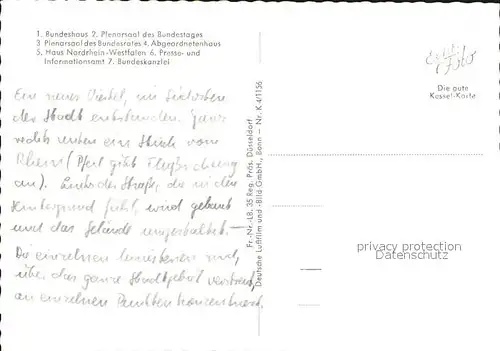 1. Bundeshaus 2. Plenarsaal des Bundestages
3 Plenarsaal des Bundesrates 4. Abgeordnetenhaus
5. Haus Nordrhein-Westfalen 6. Presse- und
Informationsamt 7. Bundeskanzlei
Ein neues Viertel, im Südosten
der Stadt entstanden. Ganz
rechts unten ein Stück vom
Rhein (Pfeil gibt Flußrichtung
an). Links der Straße, die in den
Hintergrund führt, wird gebaut
und das Gelände umgestaltet. —
Die einzelnen Ministerien sind,
über das ganze Stadtgebiet verstreut,
an einzelnen Punkten konzentriert.
Fr.-Nr.-LB. 35 Reg. Präs. Düsseldorf
Deutsche Luftfilm und -Bild GmbH., Bonn — Nr. K 4/1156
Echte
Foto
Die gute
Kessel-Karte
privacy protection
Datenschutz